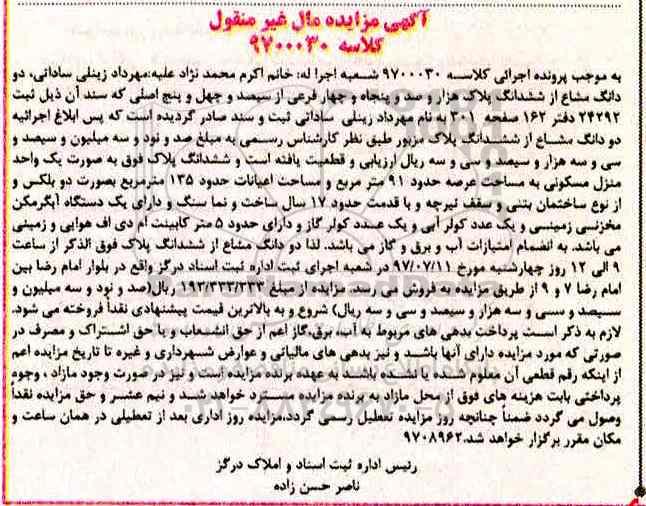 آگهی مزایده مال غیر منقول
کلاسه ۹۷۰۰۰۳۰
به موجب پرونده اجرائی کلاسه ۹۷۰۰۰۳۰ شعبه اجرا له: خانم اکرم محمد نژاد علیه:مهرداد زینلی ساداتی، دو
دانگ مشاع از ششدانگ پلاک هزار و صد و پنجاه و چهار فرعی از سیصد و چهل و پنج اصلی که سند آن ذیل ثبت
۲۴۲۹۲ دفتر ۱۶۲ صفحه ۳۰۱ به نام مهرداد زینلی ساداتی ثبت و سند صادر گردیده است که پس ابلاغ اجرائیه
دو دانگ مشاع از ششدانگ پلاک مزبور طبق نظر کارشناس رسمی به مبلغ صد و نود و سه میلیون و سیصد و
سی و سه هزار و سیصد و سی و سه ریال ارزیابی و قطعیت یافته است و ششدانگ پلاک فوق به صورت یک واحد
منزل مسکونی به مساحت عرصه حدود ۹۱ متر مربع و مساحت اعیانات حدود ۱۳۵ مترمربع بصورت دو بلکس و
از نوع ساختمان بتنی و سقف تیرچه و با قدمت حدود ۱۷ سال ساخت و نما سنگ و دارای یک دستگاه آبگرمکن
مخزنسی زمینسی و یک عدد کولر آبی و یک عدد کولر گاز و دارای حدود ۵ متر کابینت ام دی اف هوایی و زمینی
می باشد. به انضمام امتیازات آب و برق و گاز می باشد. لذا دو دانگ مشاع از ششدانگ پلاک فوق الذکر از ساعت
۹ الی ۱۲ روز چهارشنبه مورخ ۹۷/۰۷/۱۱ در شعبه اجرای ثبت اداره ثبت اسناد درگز واقع در بلوار امام رضا بین
امام رضا ۷ و ۹ از طریق مزایده به فروش می رسد. مزایده از مبلغ ۱۹۳/۳۳۳/۳۳۳ ریال(صد و نود و سه میلیون و
سیصد و سی و سه هزار و سیصد و سی و سه ریال) شروع و به بالاترین قیمت پیشنهادی نقداً فروخته می شود.
لازم به ذکر است پرداخت بدهی های مربوط به آب، برق،گاز اعم از حق انشعاب و یا حق اشتراک و مصرف در
صورتی که مورد مزایده دارای آنها باشد و نیز بدهی های مالیاتی و عوارض شهرداری و غیره تا تاریخ مزایده اعم
از اینکه رقم قطعی آن معلوم شده یا نشده باشد به عهده برنده مزایده است و نیز در صورت وجود مازاد ، وجوه
پرداختی بابت هزینه های فوق از محل مازاد به برنده مزایده مسترد خواهد شد و نیم عشر و حق مزایده نقداً
وصول می گردد ضمناً چنانچه روز مزایده تعطیل رسمی گردد،مزایده روز اداری بعد از تعطیلی در همان ساعت و
مکان مقرر برگزار خواهد شد.۹۷۰۸۹۶۲
رئیس اداره ثبت اسناد و املاک درگز
ناصر حسن زاده